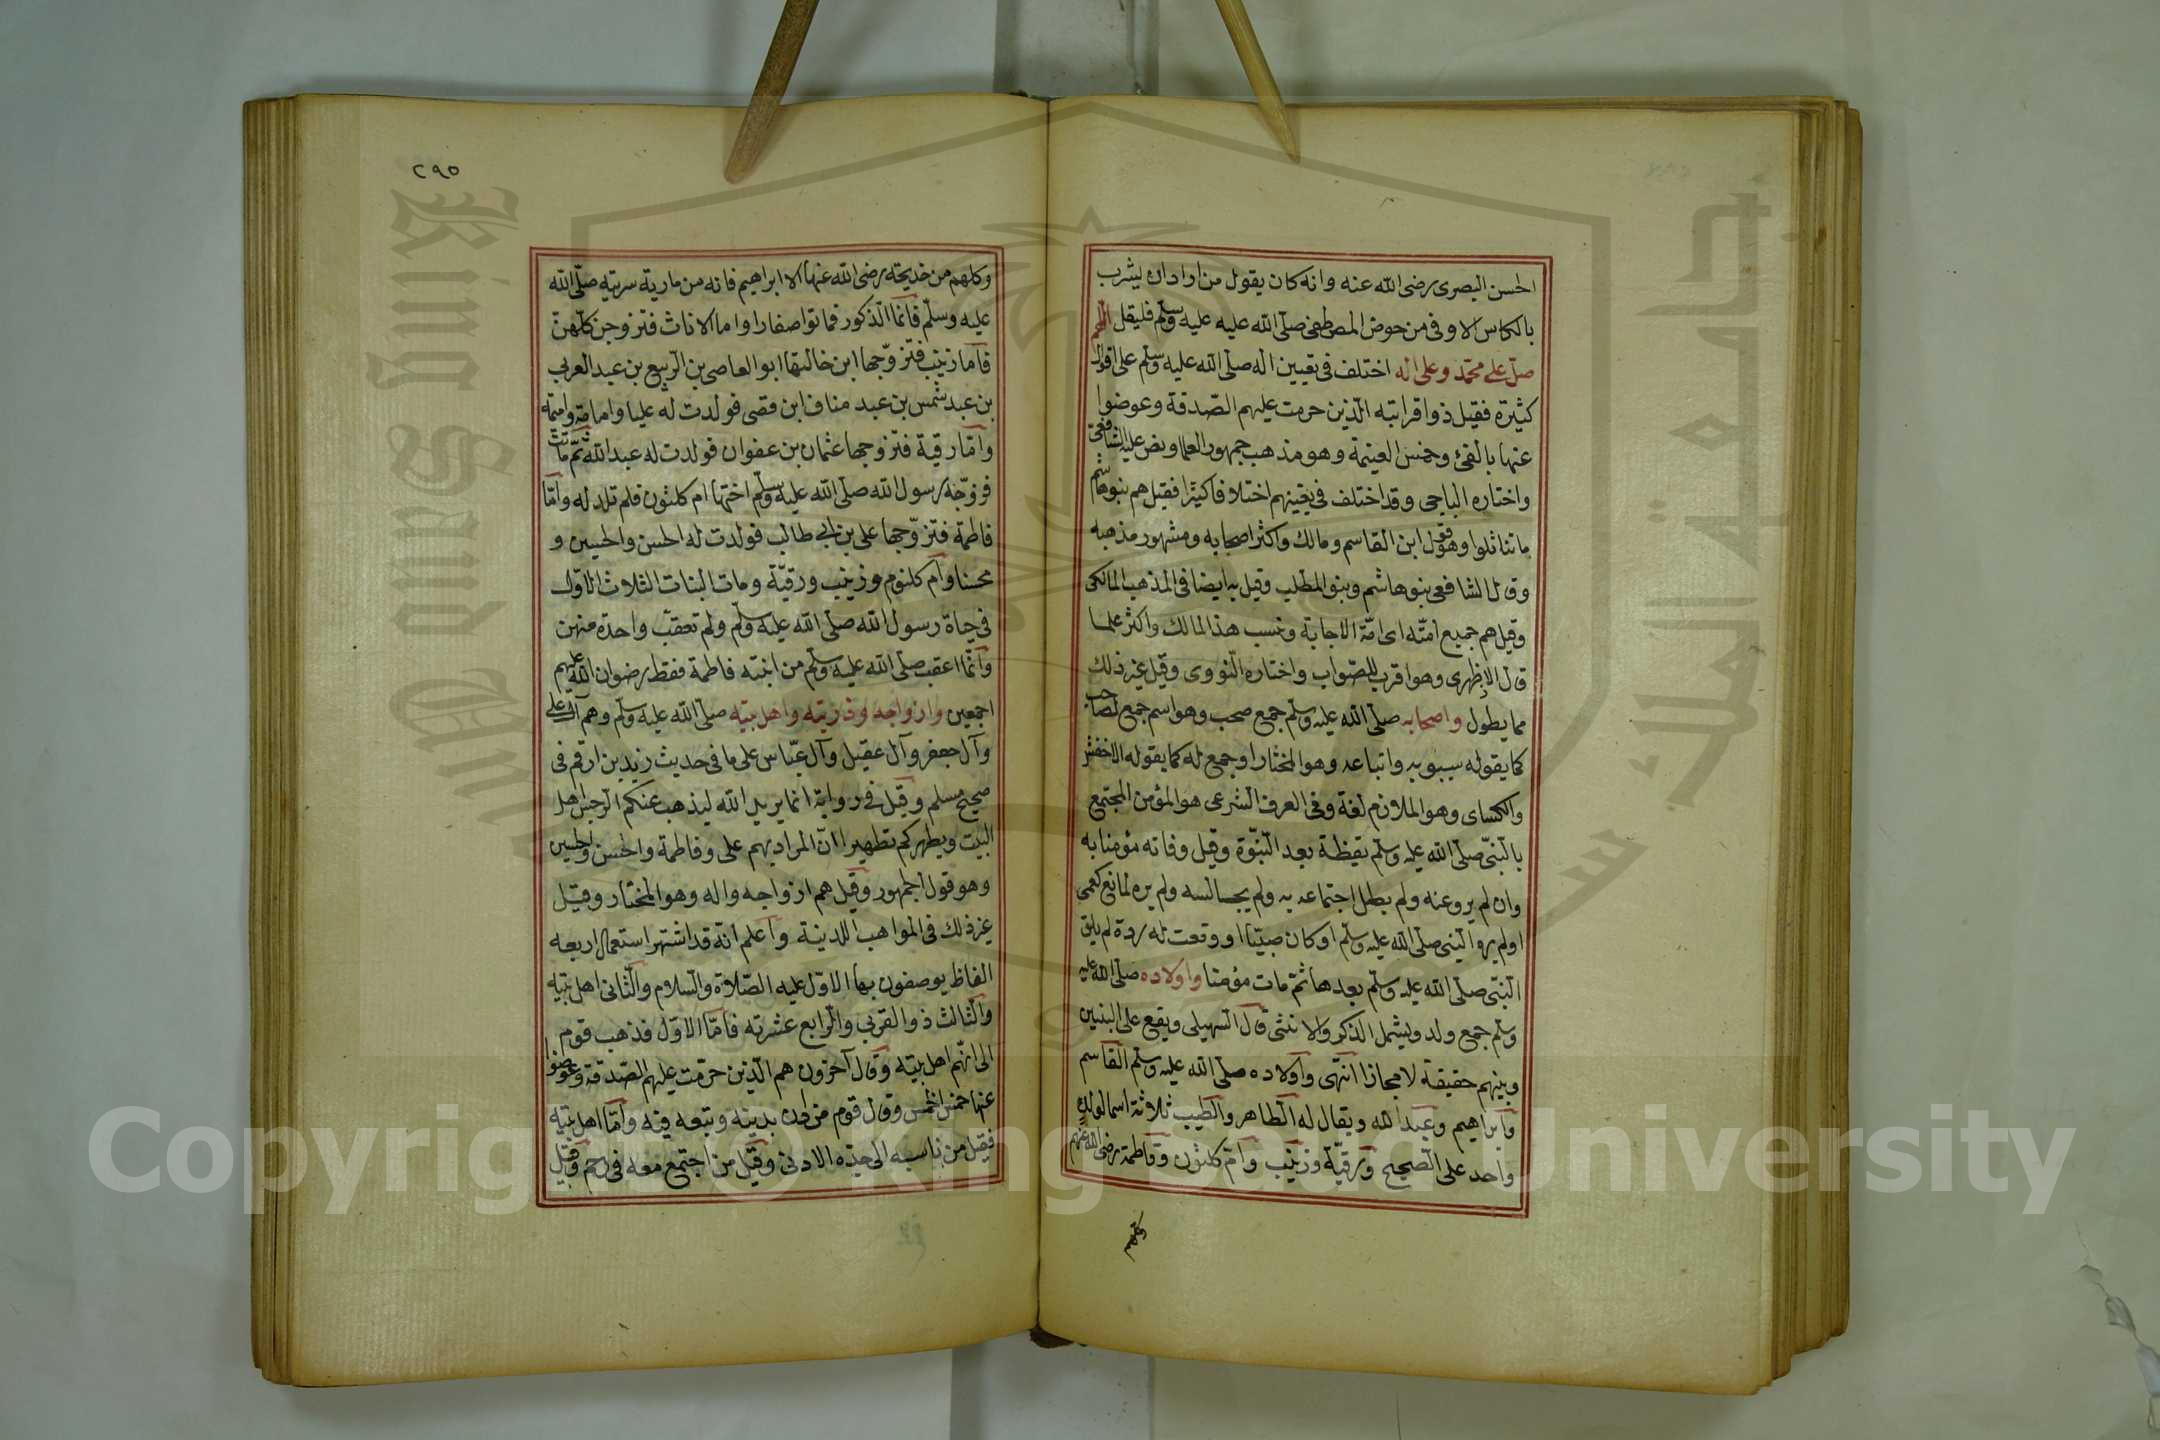 الحسن البصرى رضى الله عنه وانه كان يقول من اراد ان يشرب
بالكاس الاوفى من حوض المصطفى صلى الله عليه عليه وسلم فليقل اللهم
صل على محمد وعلى اله اختلف فى تعيين اله صلى الله عليه وسلم على اقوال
كثيرة فقيل ذوا قرابته الذين حرمت عليهم الصدقة وعوضوا
عنها بالفئ وخمس الغنيمة وهو مذهب جمهور العلما ونص عليه الشافعى
واختاره الباجى وقد اختلف فى تعيينهم اختلافا كثيرا فقيل هم بنو هاشم
ما تناثلوا وهو قول ابن القاسم ومالك واكثر اصحابه ومشهور مذهبه
وقال الشافعى بنو هاشم وبنو المطلب وقيل به ايضا فى المذهب المالكى
وقيل هم جميع امته اى امة الاجابة ونسب هذا لمالك واكثر علما
قال الازهرى وهو اقرب للصواب واختاره النووى وقيل غير ذلك
مما يطول واصحابه صلى الله عليه وسلم جمع صحب وهو اسم جمع لصاحب
كما يقوله سيبويه واتباعه وهو المختار او جمع له كما يقوله الاخفش
والكساى وهو الملازم لغة وفى العرف الشرعى هو المؤمن المجتمع
بالنبى صلى الله عليه وسلم يقظة بعد النبوة وقيل وفاته مؤمنا به
وان لم يرو عنه ولم يطل اجتماعه به ولم يجالسه ولم يره لمانع كعمى
اولم يروا النبى صلى الله عليه وسلم او كان صبيا او وقعت له ردة لم يلق
النبى صلى الله عليه وسلم بعدها ثم مات مؤمنا واولاده صلى الله عليه
وسلم جمع ولد ويشمل الذكر والانثى قال السهيلى ويقع على البنين
وبينهم حقيقة لا مجازا انتهى واولاده صلى الله عليه وسلم القاسم
وابراهيم وعبد الله ويقال له الطاهر والطيب ثلاثة اسما لولد
واحد على الصحيح ورقية وزينب وام كلثوم وفاطمة رضى الله عنهم
وكلهم
٢٩٥
وكلهم من خديجة رضى الله عنها الا ابراهيم فانه من مارية سريته صلى الله
عليه وسلم فانما الذكور فماتوا صغارا واما الاناث فتزوجن كلهن
فاما زينب فتزوجها ابن خالتها ابو العاصى بن الربيع بن عبد العربى
بن عبد شمس بن عبد مناف ابن قصى فولدت له عليا وامامة واميمة
واما رقية فتزوجها عثمان بن عفوان فولدت له عبد الله ثم ماتت
فزوجه رسول الله صلى الله عليه وسلم اختها ام كلثوم فلم تلد له واما
فاطمة فتزوجها على بن ابى طالب فولدت له الحسن والحسين و
محسنا وام كلثوم وزينب ورقية ومات البنات الثلاث الاول
فى حياة رسول الله صلى الله عليه وسلم ولم تعقب واحدة منهن
وانما اعقب صلى الله عليه وسلم من ابنته فاطمة فقط رضوان الله عليهم
اجمعين وازواجه وذريته واهل بيته صلى الله عليه وسلم وهم آل على
وآل جعفر وآل عقيل وآل عباس على ما فى حديث زيد بن ارقم فى
صحيح مسلم وقيل فى رواية انما يريد الله ليذهب عنكم الرجس اهل
البيت ويطهركم تطهيرا ان المراد بهم على وفاطمة والحسن والحسين
وهو قول الجمهور وقيل هم ازواجه واله وهو المختار وقيل
غير ذلك فى المواهب اللدنية واعلم انه قد اشتهر استعمال اربعه
الفاظ يوصفون بها الاول عليه الصلاة والسلام والثانى اهل بيته
والثالث ذوا القربى والرابع عشرته فاما الاول فذهب قوم
الى انهم اهل بيته وقال آخرون هم الذين حرمت عليهم الصدقة وعوضوا
عنها خمس الخمس وقال قوم من دان بدينه وتبعه فيه واما اهل بيته
فقيل من ناسبه الى جده الادنى وقيل من اجتمع معه فى رحم وقيل
Copyright © King Saud University